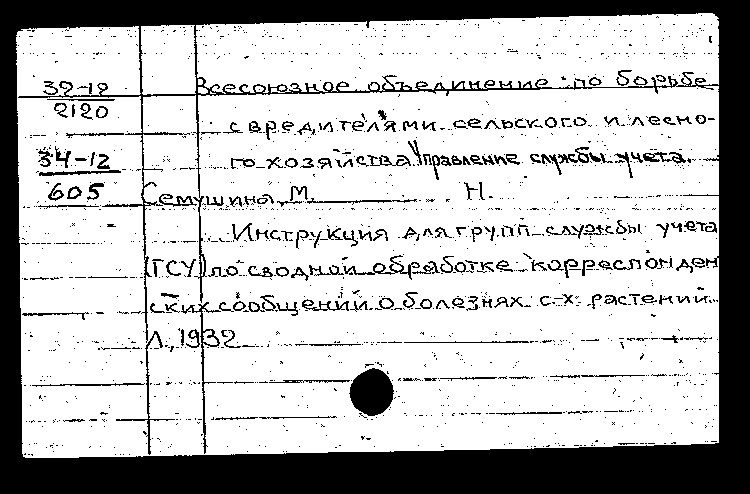 32-12 Всесоюзное объединение по борьбе
2120
с вредителями сельского и лесно-
34-12 го хозяйства. Управление службы учета.
605 Семушина, М. Н.
Инструкция для групп службы учета
(ГСУ) по сводной обработке корреспонден
ских сообщений о болезнях с-х. растений.
Л., 1932